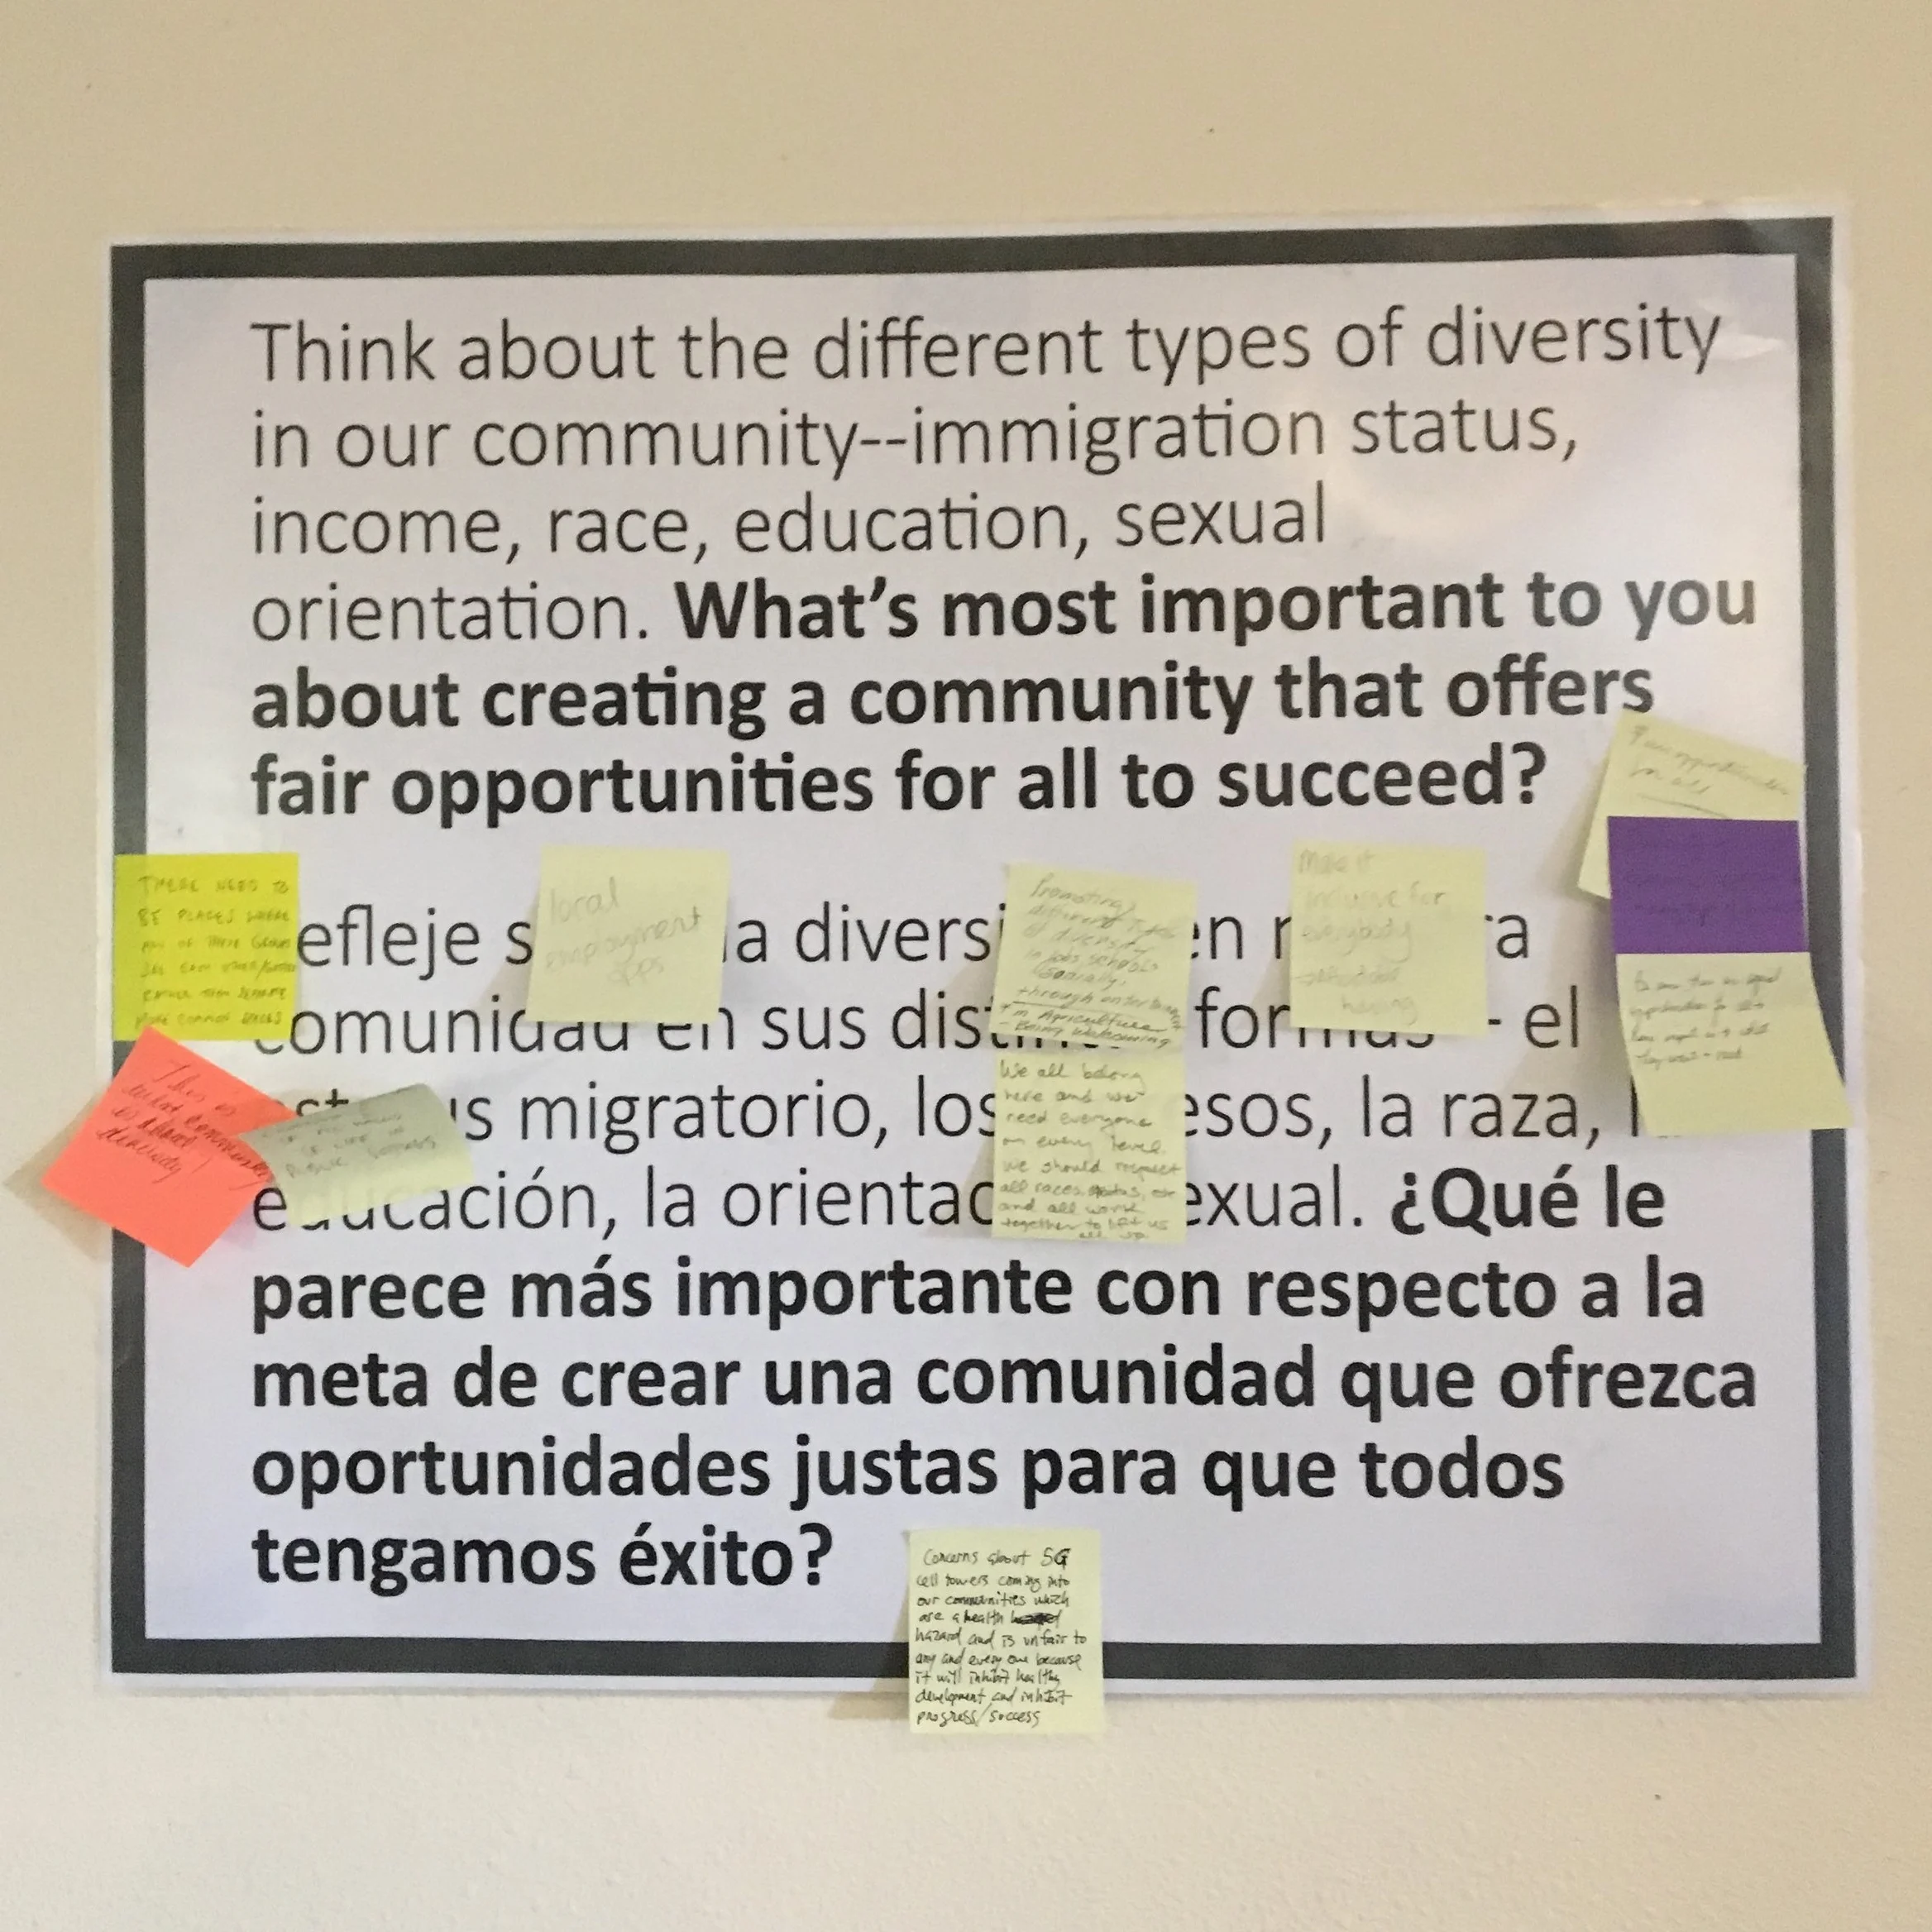 Think about the different types of diversity
in our community--immigration status,
income, race, education, sexual
orientation. What's most important to you
about creating a community that offers
fair opportunities for all to succeed?
for all
THERE NEED TO
BE PLACES WHERE
ANY OF THESE GROUPS
RATHER THAN SEPARATE
MORE COMMON SPACES
local
employment
opps
Promoting
different types
of diversity
in jobs, schools
socially,
through
in Agriculture
- Being Welcoming
Make it
inclusive for
everybody
housing
efleje s la diversi en ra
omunidad en sus dist for - el
us migratorio, los esos, la raza,
educación, la orientac exual. ¿Qué le
parece más importante con respecto a la
meta de crear una comunidad que ofrezca
oportunidades justas para que todos
tengamos éxito?
This is
what community
is about
diversity!
We all belong
here and we
need everyone
on every level.
We should respect
all races, status, etc
and all work
together to lift us
all up.
Concerns about 5G
cell towers coming into
our communities which
are a health
hazard and is unfair to
any and every one because
it will inhibit healthy
development and inhibit
progress/success